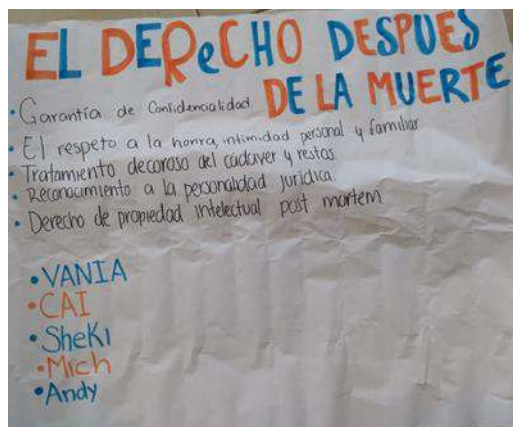 EL DEReCHO DESPUES
DE LA MUERTE
• Garantía de Confidencialidad
• El respeto a la honra, intimidad personal y familiar
• Tratamiento decoroso del cadaver y restos.
• Reconocimiento a la personalidad jurídica.
• Derecho de propiedad intelectual post mortem
• VANIA
• CAI
• SheKI
• Mich
• Andy